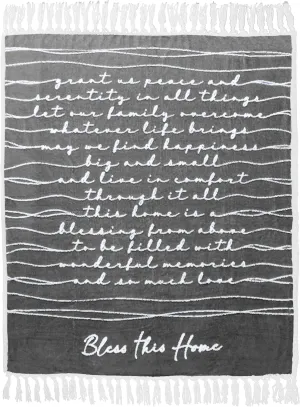 grant us peace and
serentity in all things
let our family overcome
whatever life brings
may we find happiness
big and small
and live in comfort
through it all
this home is a
blessing from above
to be filled with
wonderful memories
and so much love
Bless this Home